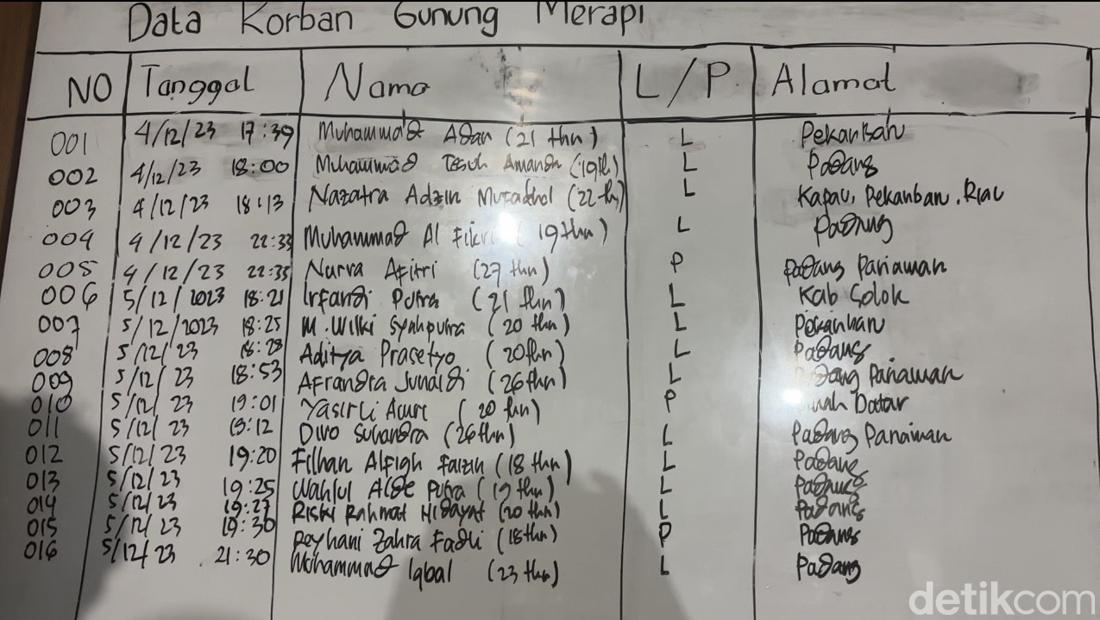 Data Korban Gunung Merapi
NO Tanggal Nama L/P Alamat
001 4/12/23 17:39 Muhammad Adan (21 thn) L Pekanbaru
002 4/12/23 18:00 Muhammad Teguh Amanda (19th) L Padang
003 4/12/23 18:13 Nazatra Adzin Mufadhol (22 th) L Kapau, Pekanbaru, Riau
004 4/12/23 22:33 Muhammad Al Fikri (19 thn) L Padang
005 4/12/23 22:35 Nurva Afitri (27 thn) P Padang Pariaman
006 5/12/2023 18:21 Irfandi Putra (21 thn) L Kab Solok
007 5/12/2023 18:25 M. Wilki Syahputra (20 thn) L Pekanbaru
008 5/12/23 18:28 Aditya Prasetyo (20 thn) L Padang
009 5/12/23 18:53 Afrandra Junaidi (26 thn) L Padang Pariaman
010 5/12/23 19:01 Yasirli (20 thn) P Datar
011 5/12/23 19:12 Divo Suhandra (26 thn) L Padang Pariaman
012 5/12/23 19:20 Filhan Alfiqh Faizin (18 thn) L Padang
013 5/12/23 19:25 Wahlul Alde Putra (19 thn) L Padang
014 5/12/23 19:27 Riski Rahmat Hidayat (20 thn) L Padang
015 5/12/23 19:30 Reyhani Zahra Fadli (18 thn) P Padang
016 5/12/23 21:30 Mohammad Iqbal (23 thn) L Padang
detikcom